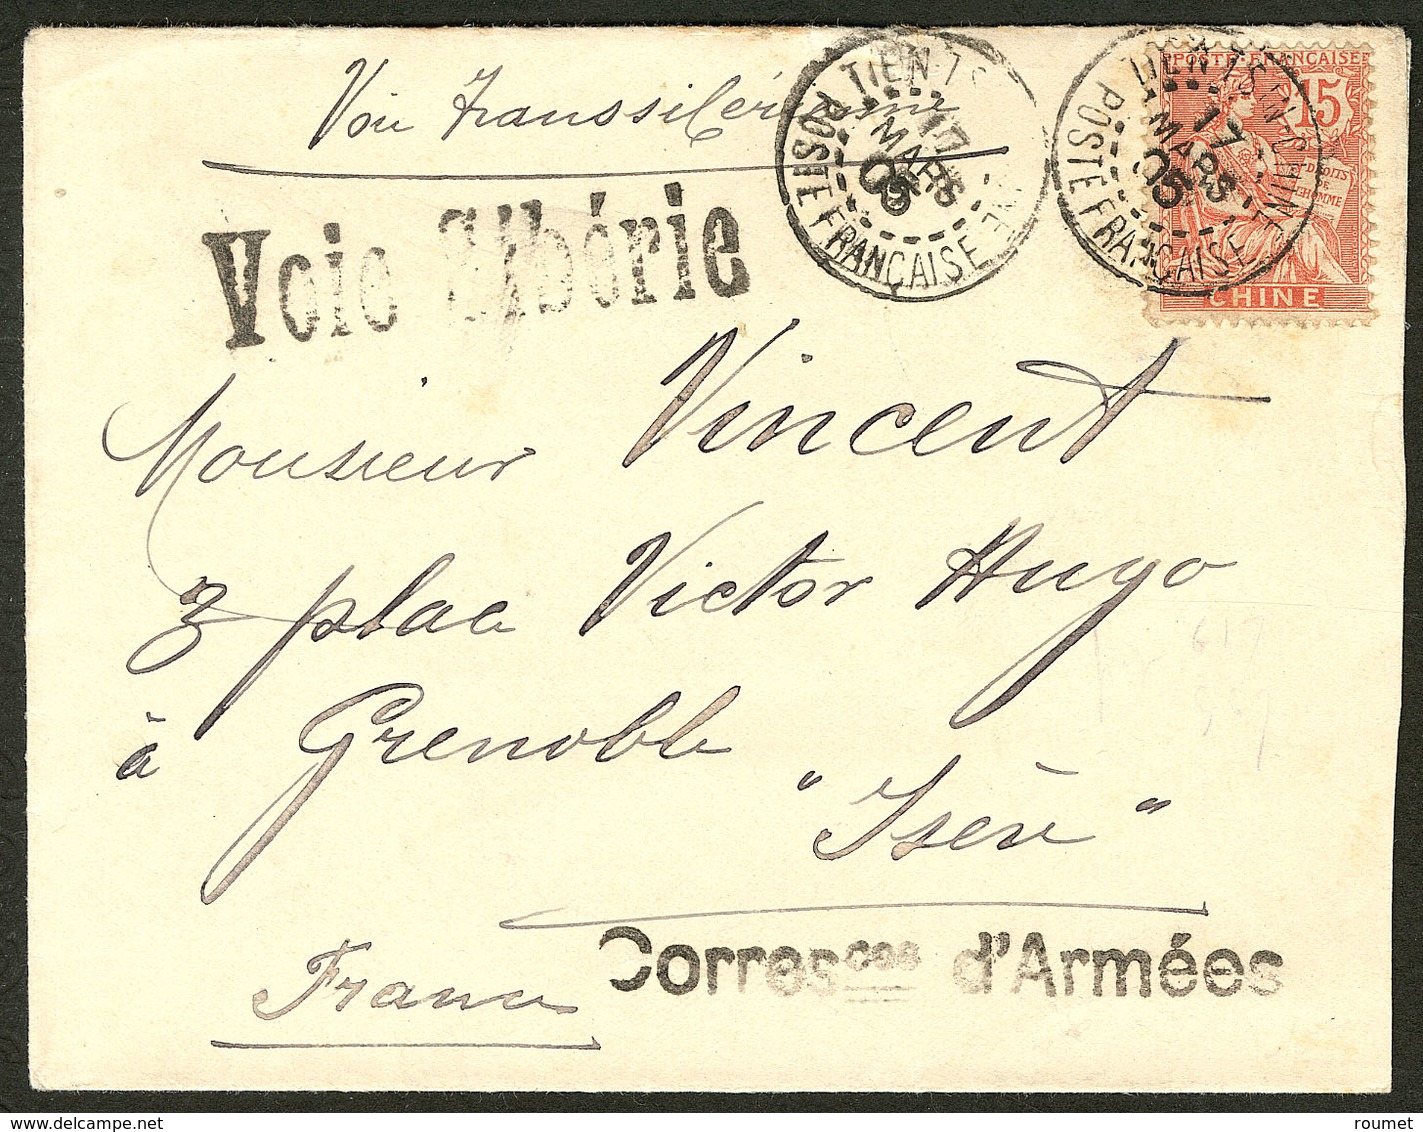 Voie Transsibérienne
TIEN-TSIN
POSTE FRANÇAISE
17
MARS
05
TIEN-TSIN-CHINE
POSTE FRANÇAISE
17
MARS
05
POSTE FRANÇAISE
15
DROITS
DE
L'HOMME
CHINE
Voie Sibérie
Monsieur Vincent
3 place Victor Hugo
à Grenoble
"Isère"
France
Corresces d'Armées
roumet